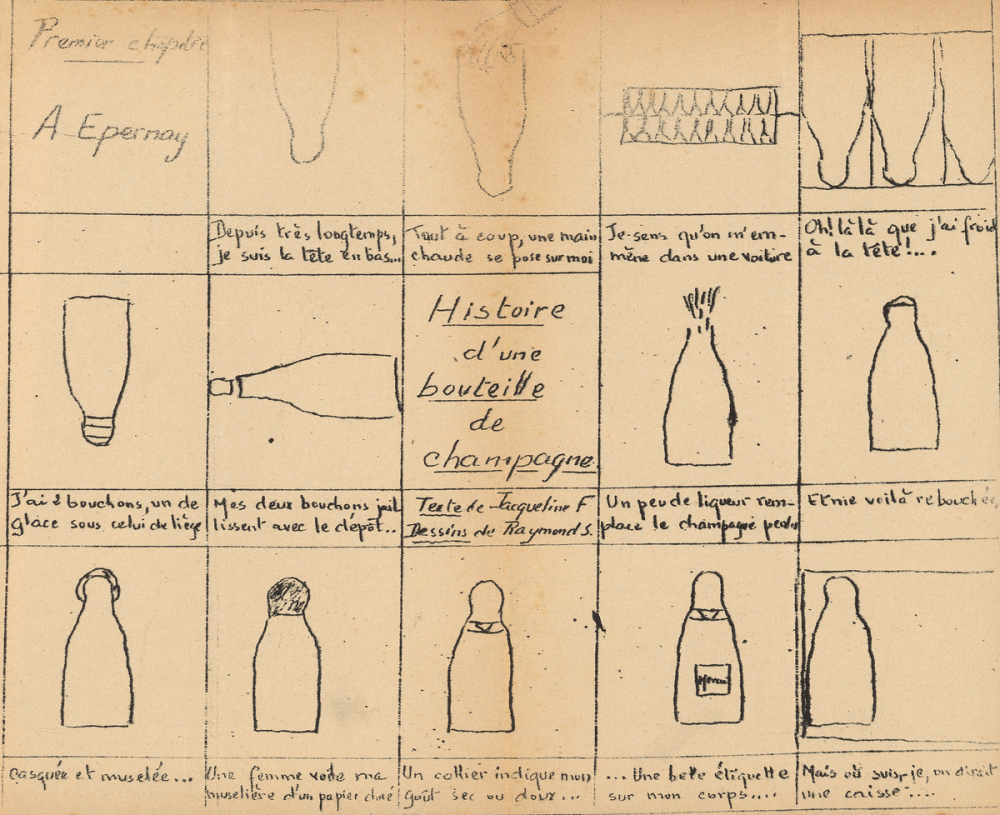 Premier chapitre
A Epernay
Depuis très longtemps,
je suis la tête en bas...
Tout à coup, une main
chaude se pose sur moi
Je sens qu'on m'em-
mène dans une voiture
Oh! là là que j'ai froid
à la tête!...
J'ai 2 bouchons, un de
glace sous celui de liège
Mes deux bouchons jail
lissent avec le dépôt..
Histoire
d'une
bouteille
de
champagne
Texte de Jacqueline F
Dessins de Raymond S.
Un peu de liqueur rem-
place le champagne perdu
Et me voilà rebouchée
casquée et muselée...
Une femme voile ma
muselière d'un papier doré
Un collier indique mon
goût sec ou doux...
... Une belle étiquette
sur mon corps....
Mais où suis-je, on dirait
une caisse....